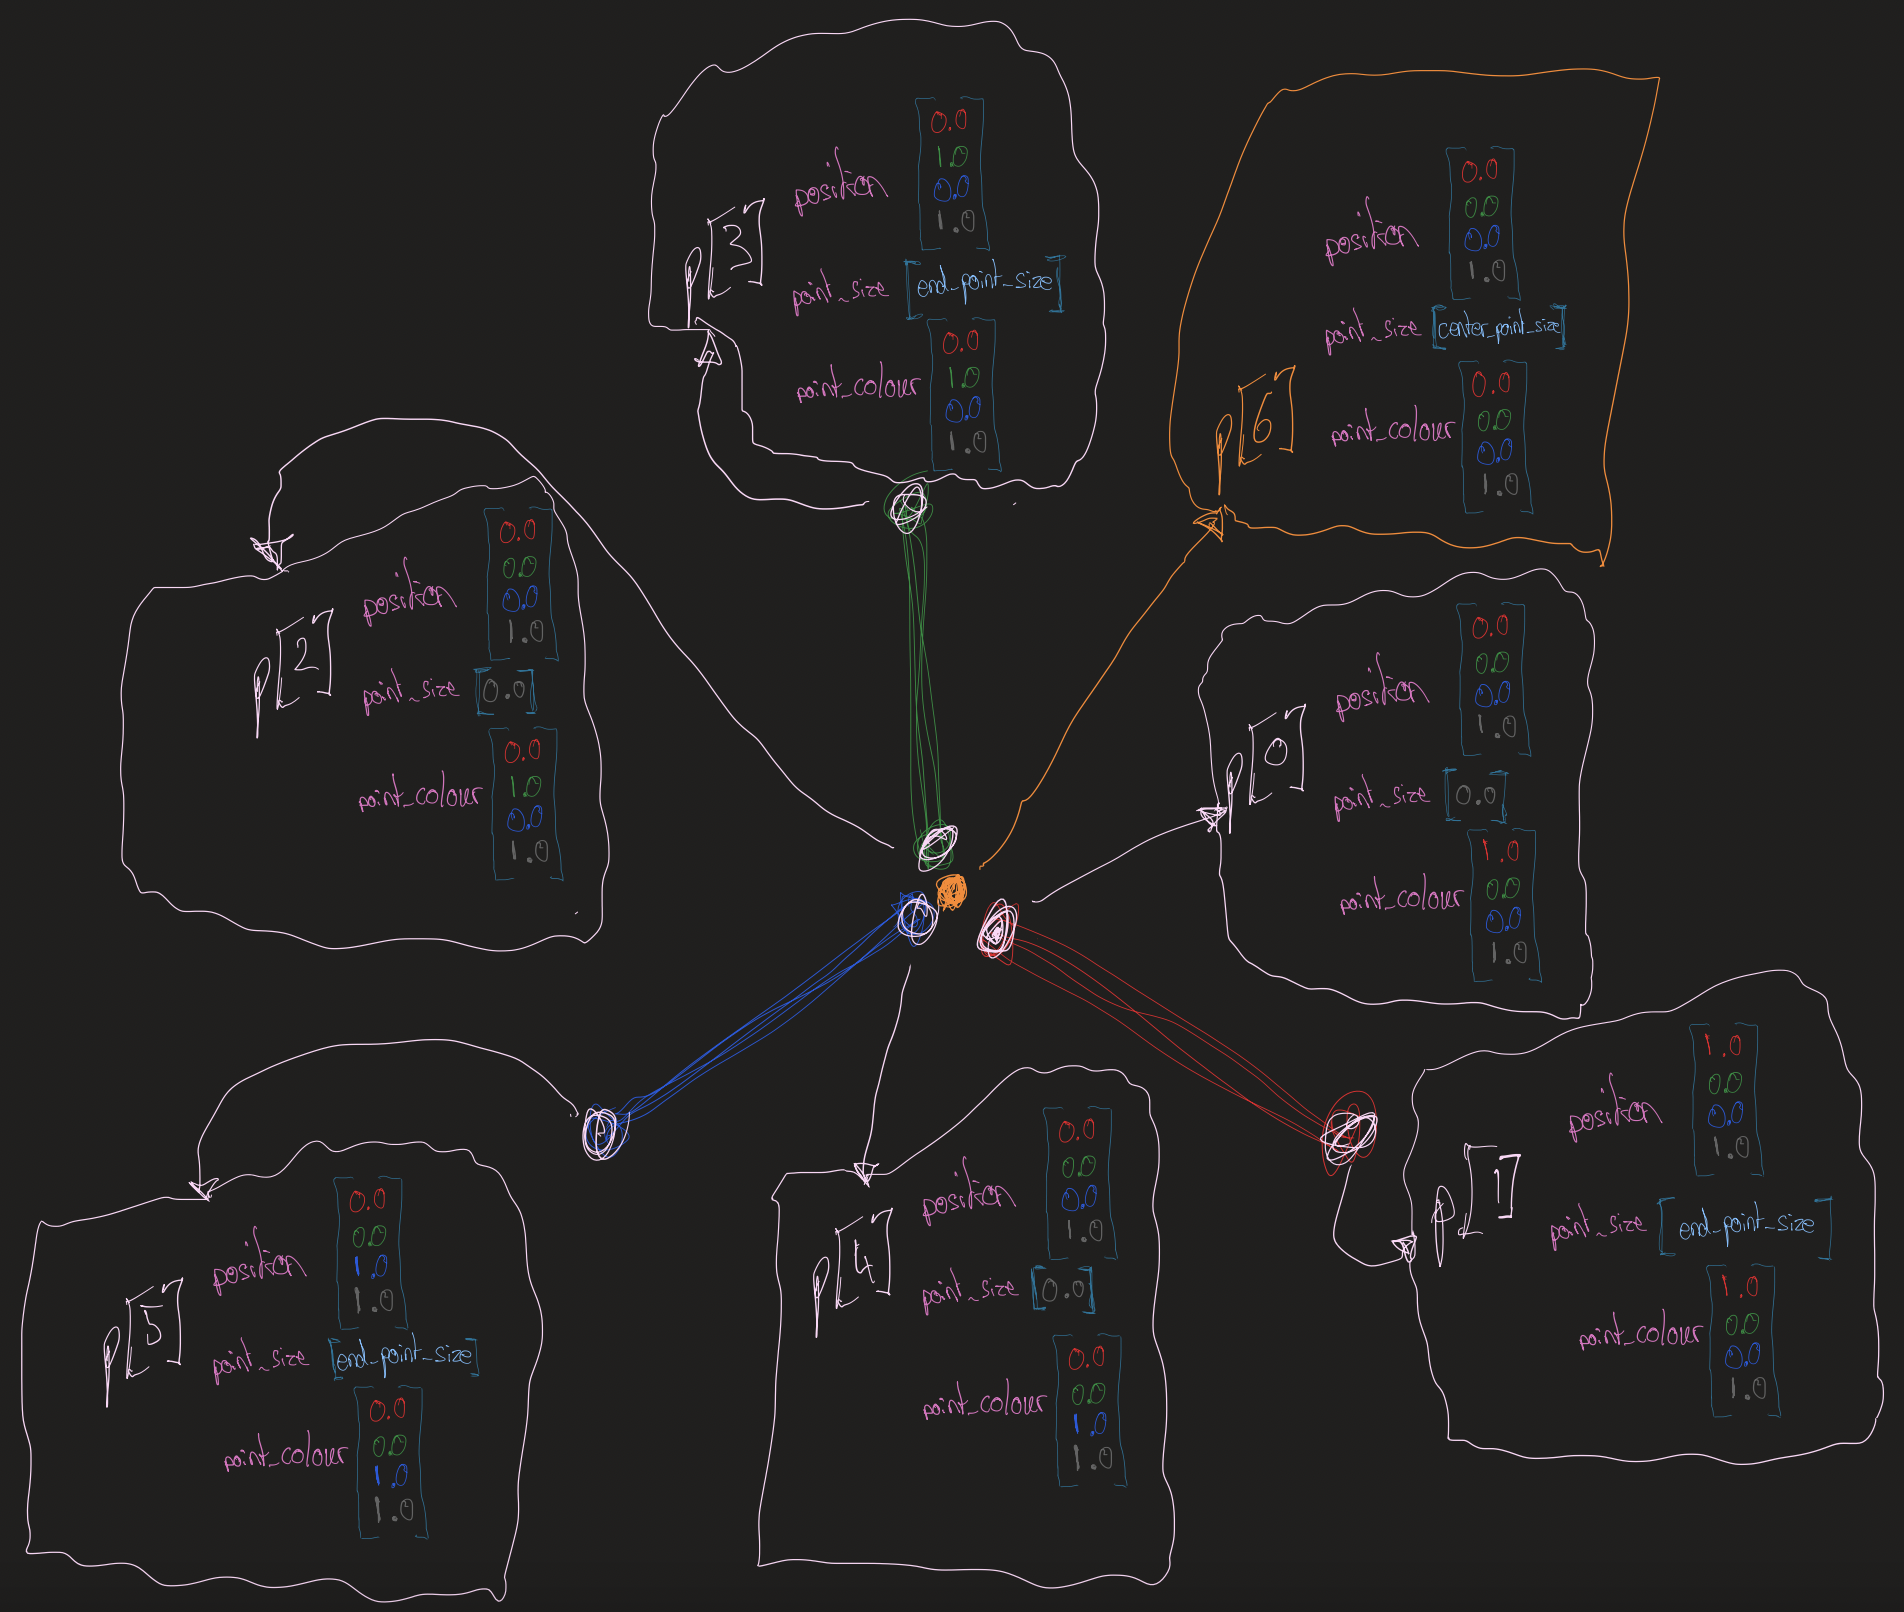 p[3]
position
0.0
1.0
0.0
1.0
point_size [end_point_size]
point_colour
0.0
1.0
0.0
1.0
p[6]
position
0.0
0.0
0.0
1.0
point_size [center_point_size]
point_colour
0.0
0.0
0.0
1.0
p[2]
position
0.0
0.0
0.0
1.0
point_size [0.0]
point_colour
0.0
1.0
0.0
1.0
p[0]
position
0.0
0.0
0.0
1.0
point_size [0.0]
point_colour
1.0
0.0
0.0
1.0
p[1]
position
1.0
0.0
0.0
1.0
point_size [end_point_size]
point_colour
1.0
0.0
0.0
1.0
p[4]
position
0.0
0.0
0.0
1.0
point_size [0.0]
point_colour
0.0
0.0
1.0
1.0
p[5]
position
0.0
0.0
1.0
1.0
point_size [end_point_size]
point_colour
0.0
0.0
1.0
1.0